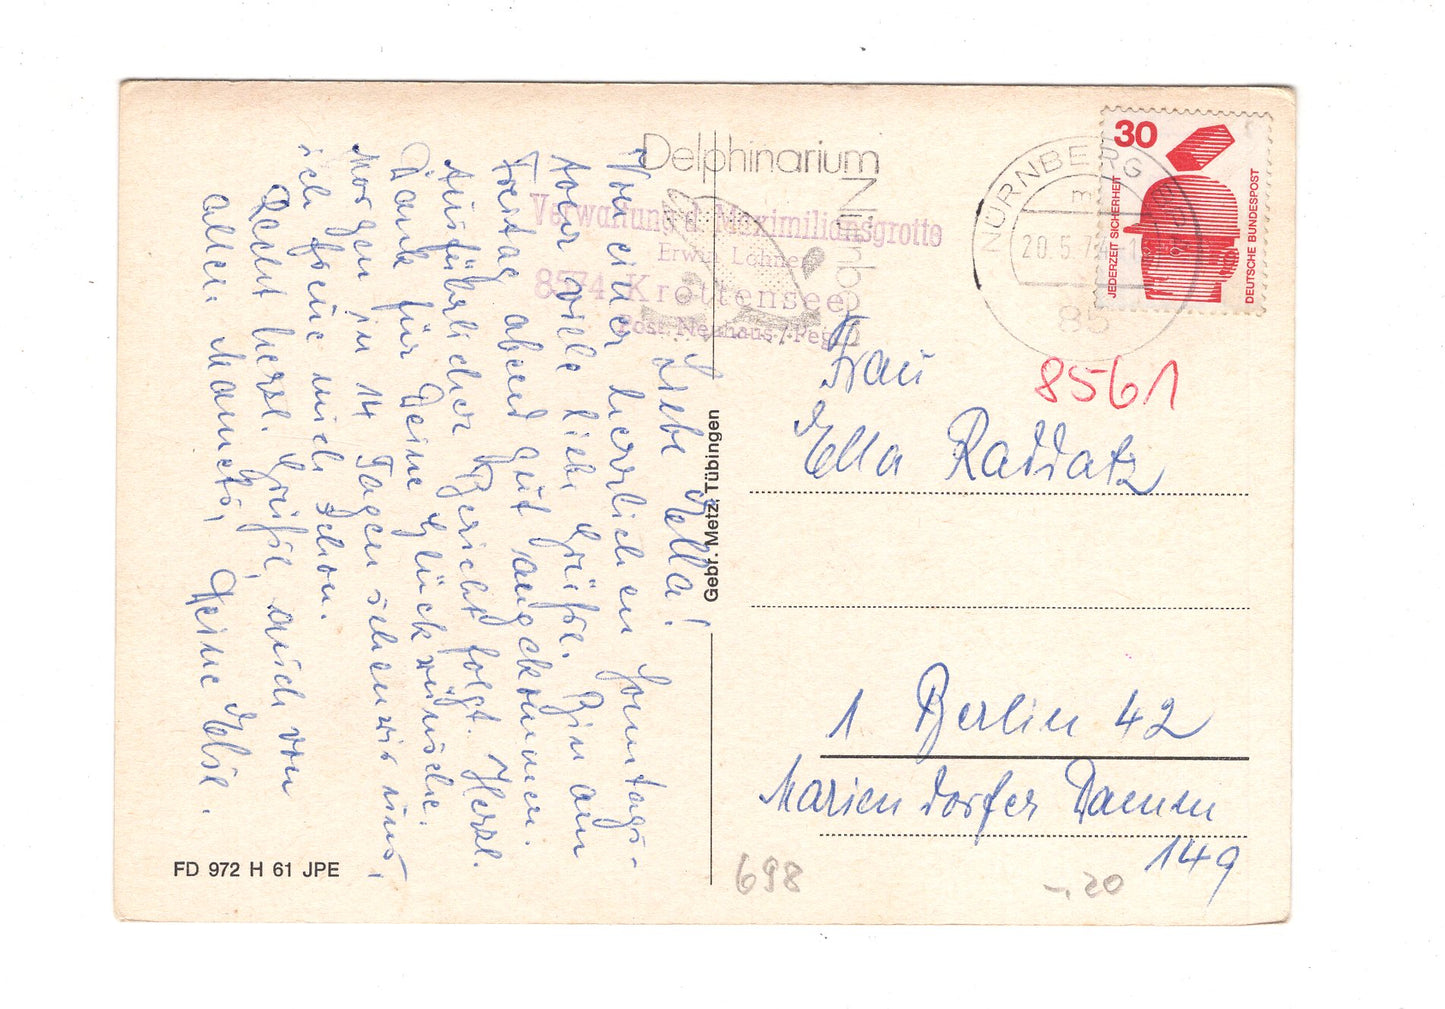 Liebe Ella!
Von einer herrlichen Sonntags-
tour viele liebe Grüße. Bin am
Freitag abend gut angekommen.
Ausführlicher Bericht folgt. Herzl.
Dank für Deine Glückwünsche.
Morgen in 14 Tagen sehen wir uns,
ich freue mich schon.
Recht herzl. Grüße, auch von
allen Mannets,
Deine Else.
FD 972 H 61 JPE
Gebr. Metz, Tübingen
Delphinarium
Nürnberg
Verwaltung d. Maximiliansgrotte
Erwin Lohner
8574 Krottensee
Post Neuhaus/Pegn
NÜRNBERG
20.5.74
85
30
JEDERZEIT SICHERHEIT
DEUTSCHE BUNDESPOST
8561
Frau
Ella Raddatz
1 Berlin 42
Mariendorfer Damm
149
698
-.20